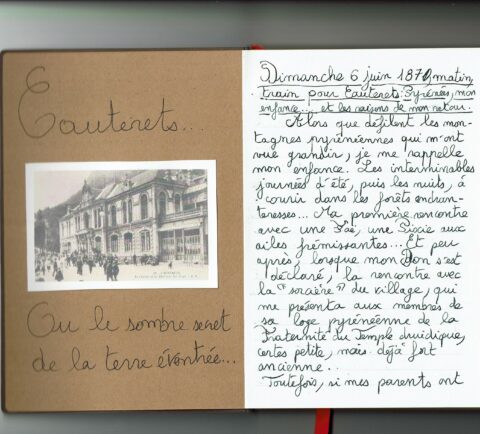 Cauterets...
Ou le sombre secret
de la terre éventrée...
Dimanche 6 juin 1870, matin,
train pour Cauterets: Pyrénées, mon
enfance... et les raisons de mon retour.
Alors que défilent les mon-
tagnes pyrénéennes qui m'ont
vue grandir, je me rappelle
mon enfance. Les interminables
journées d'été, puis les nuits, à
courir dans les forêts enchan-
teresses... Ma première rencontre
avec une Fae, une Pixie aux
ailes frémissantes... Et peu
après, lorsque mon Don s'est
déclaré, la rencontre avec
la "sorcière" du village, qui
me présenta aux membres de
sa loge pyrénéenne de la
Fraternité du Temple druidique,
certes petite, mais déjà fort
ancienne...
Toutefois, si mes parents ont